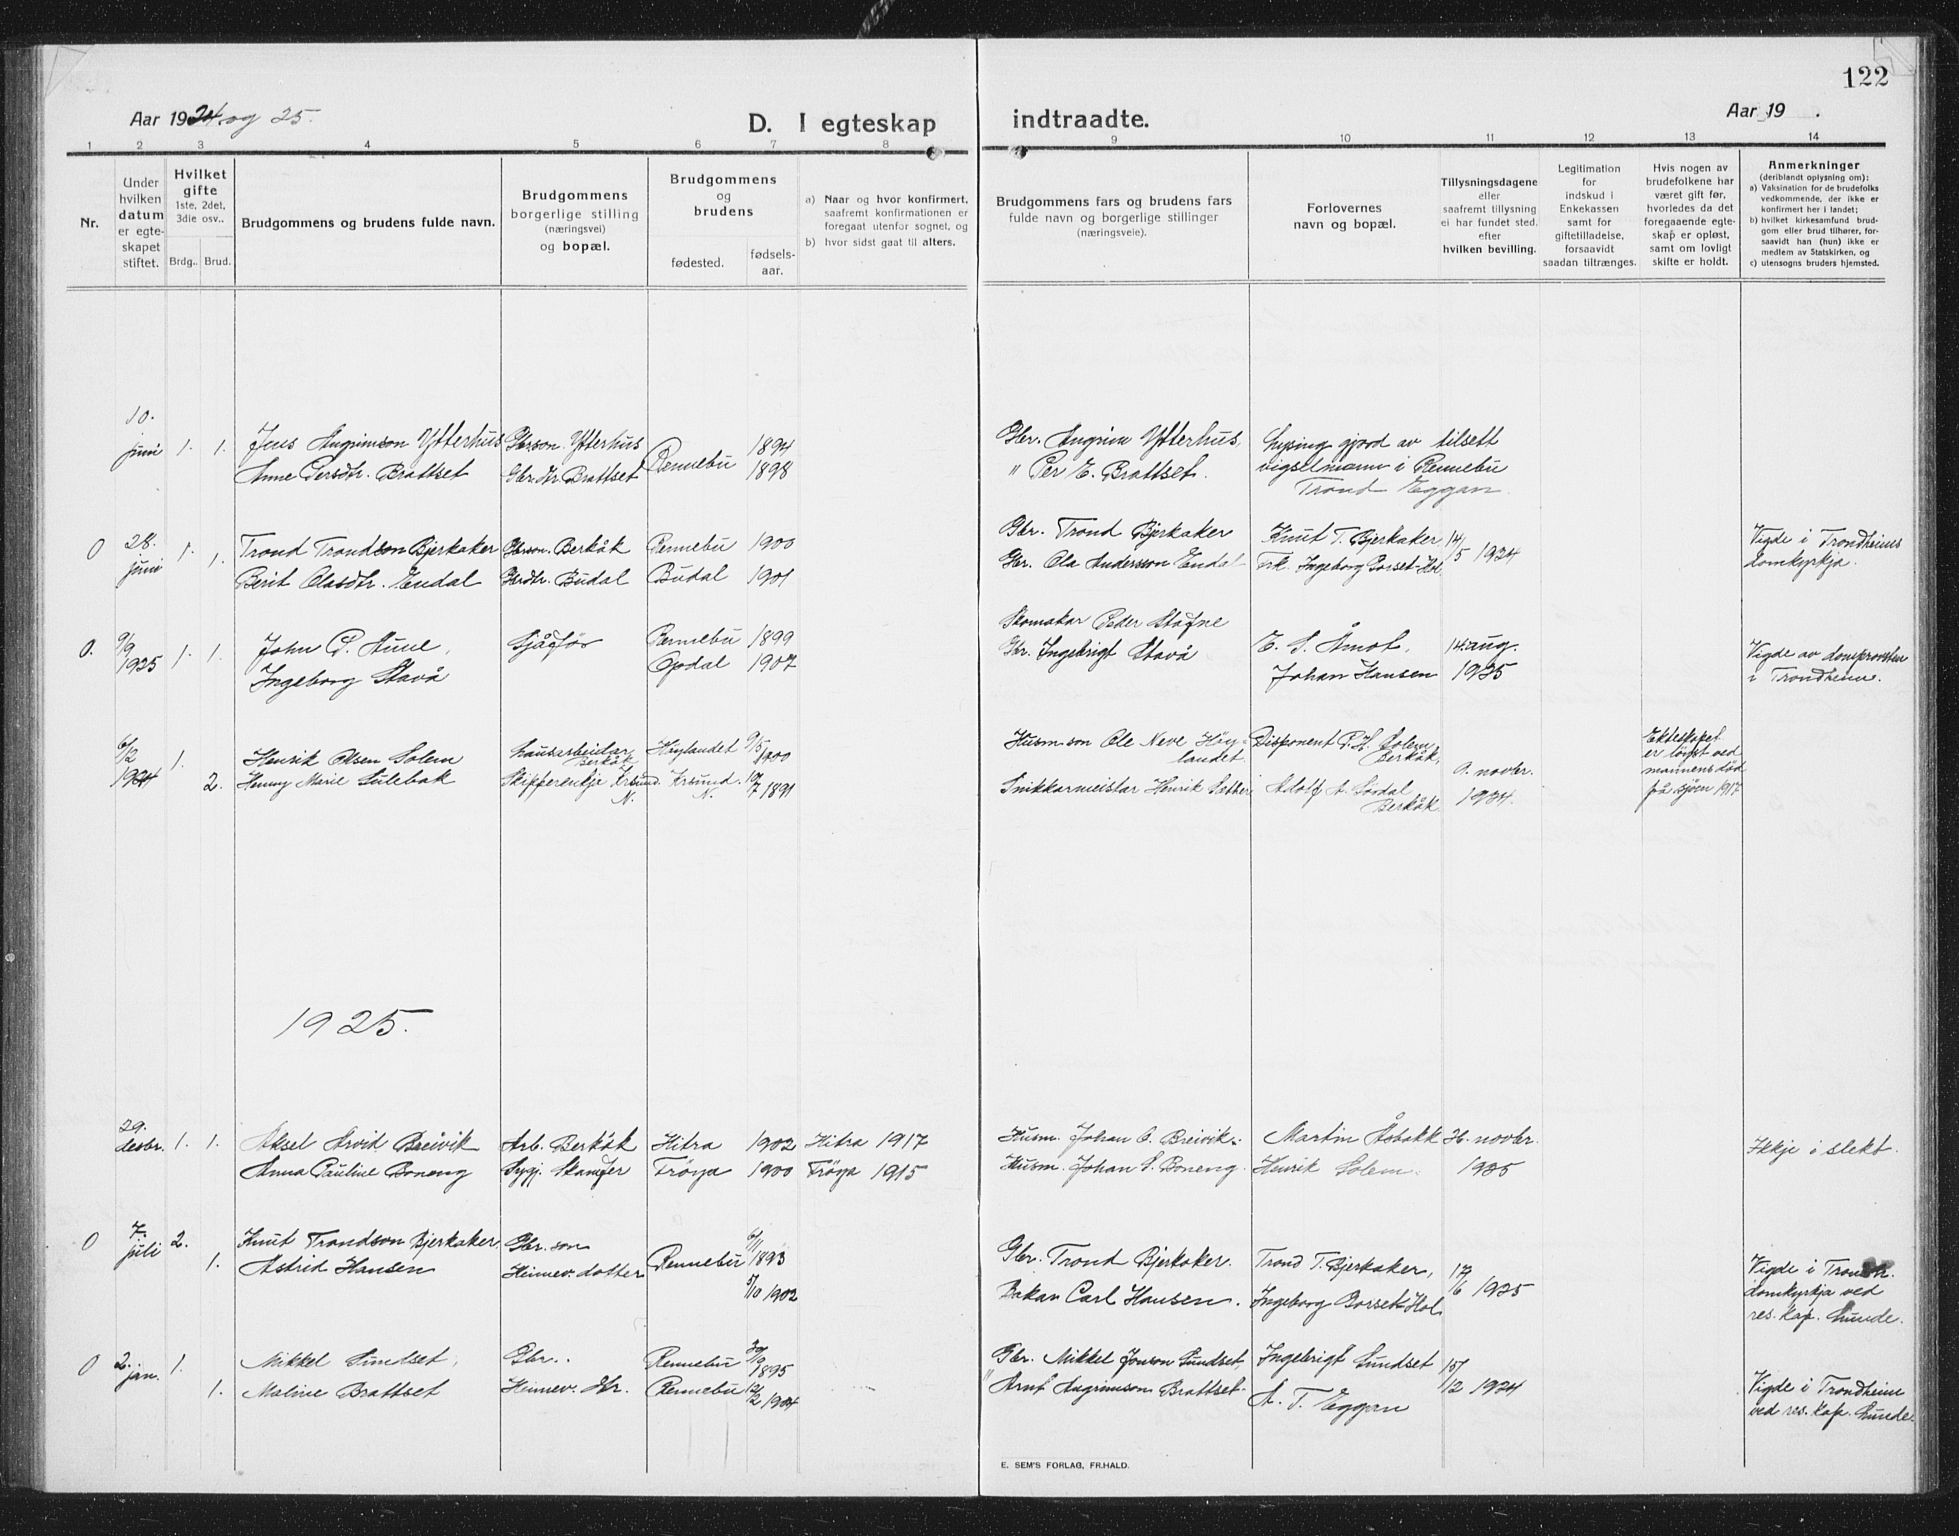 122
Aar 1924 og 25.
D. I egteskap indtraadte.
Aar 19 .
1 2 3 4 5 6 7 8 9 10 11 12 13 14
Nr.
Under
hvilken
datum
er egte-
skapet
stiftet.
Hvilket
gifte
1ste, 2det,
3die osv..
Brdg.. Brud.
Brudgommens og brudens fulde navn.
Brudgommens
borgerlige stilling
(næringsvei)
og bopæl.
Brudgommens
og
brudens
fødested.
fødsels-
aar.
a) Naar og hvor konfirmert,
saafremt konfirmationen er
foregaat utenfor sognet, og
b) hvor sidst gaat til alters.
Brudgommens fars og brudens fars
fulde navn og borgerlige stillinger
(næringsveie).
Forlovernes
navn og bopæl.
Tillysningsdagene
eller
saafremt tillysning
ei har fundet sted,
efter
hvilken bevilling.
Legitimation
for
indskud i
Enkekassen
samt for
giftetilladelse,
forsaavidt
saadan tiltrænges.
Hvis nogen av
brudefolkene har
været gift før,
hvorledes da det
foregaaende egte-
skap er opløst,
samt om lovligt
skifte er holdt.
Anmerkninger
(deriblandt oplysning om):
a) Vaksination for de brudefolks
vedkommende, der ikke er
konfirmert her i landet;
b) hvilket kirkesamfund brud-
gom eller brud tilhører, for-
saavidt han (hun) ikke er
medlem av Statskirken, og
c) utensogns bruders hjemsted.
10.
juni 1. 1. Jens Angrimson Ytterhus Gbr.son. Ytterhus Rennebu 1894 Gbr. Angrim Ytterhus Lysing gjord av tilsett
Anne Persdtr. Brattset Gbr. dtr Brattset 1898 " Per E. Brattset. vigselmann i Rennebu
Trond Eggan.
0 28. juni 1. 1. Trond Trondson Bjerkaker Gbrson. Berkåk Rennebu 1900 Gbr. Trond Bjerkaker Knut T. Bjerkaker 14/5 1924 Vigde i Trondheims
Berit Olasdtr. Endal Gbrdtr. Budal Budal 1901 Gbr. Ola Andersson Endal Frk. Ingeborg Gorset-Hol domkyrkja.
0. 9/9 1925 1. 1. John P. Aune, Sjåfør Rennebu 1899 Skomakar Peder Stafne E. S. Åmot, 14. aug. Vigde av domprovsten
Ingeborg Stavå Opdal 1907 Gbr. Ingebrigt Stavå Johan Hansen 1925 i Trondheim.
6/12 1924 1. Henrik Olsen Solem Lausarbeidar Berkåk Høylandet 9/5 1900 Husm.son Ole Neve Høylandet Disponent P. H. Solem Berkåk, 9. novbr. Ekteskapet
2. Henny Marie Sulebak Skipperenkje Krsund N. Krsund. N. 17/7 1891 Snikkarmeistar Henrik Sæther Adolf A. Sørdal Berkåk. 1924. er løyst ved
mannens død
på sjøen 1917
1925.
29. desbr. 1. 1. Aksel Arvid Breivik Arb. Berkåk Hitra 1902 Hitra 1917 Husm. Johan O. Breivik Martin Åsbakk 26. novbr. Ikkje i slekt.
Anna Pauline Boneng Sygj. Stamfer Frøya 1900 Frøya 1915 Husm. Johan S. Boneng. Henrik Solem. 1925
0 7. juli 2. Knut Trondson Bjerkaker, Gbr. son Rennebu 6/1 1893 Gbr. Trond Bjerkaker. Trond T. Bjerkaker, 17/6 1925 Vigde i Trondh.
1. Astrid Hansen Heimev. dotter 5/10 1902 Bakar Carl Hansen. Ingeborg Gorset-Hol domkyrkja ved
res. kap. Lunde.
0 2. jan. 1. Mikkel Sundset, Gbr. Rennebu 30/9 1895 Gbr. Mikkel Jonson Sundset, Ingebrigt Sundset 15/12 1924 Vigde i Trondheim
1. Maline Brattset Heimev. dtr. Rennebu 12/2 1904 " Arnt Angrimson Brattset A. T. Eggan ved res. kap. Lunde.
E. SEM'S FORLAG, FR.HALD.